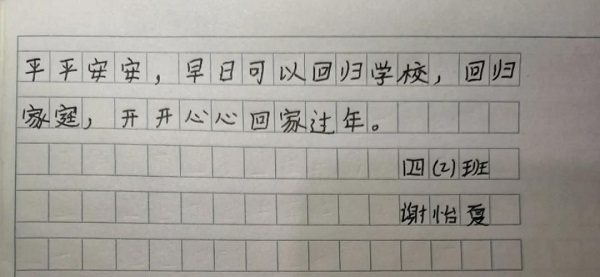 平平安安，早日可以回归学校，回归
家庭，开开心心回家过年。
四(2)班
谢怡夏